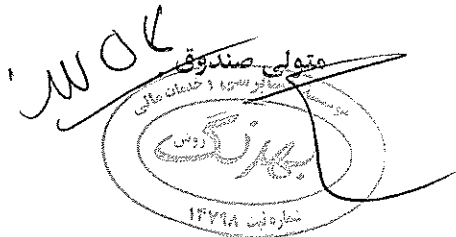 متولی صندوق
موسسه حسابرسی و خدمات مالی
بهرنگ
روش
شماره ثبت ۱۴۷۹۸